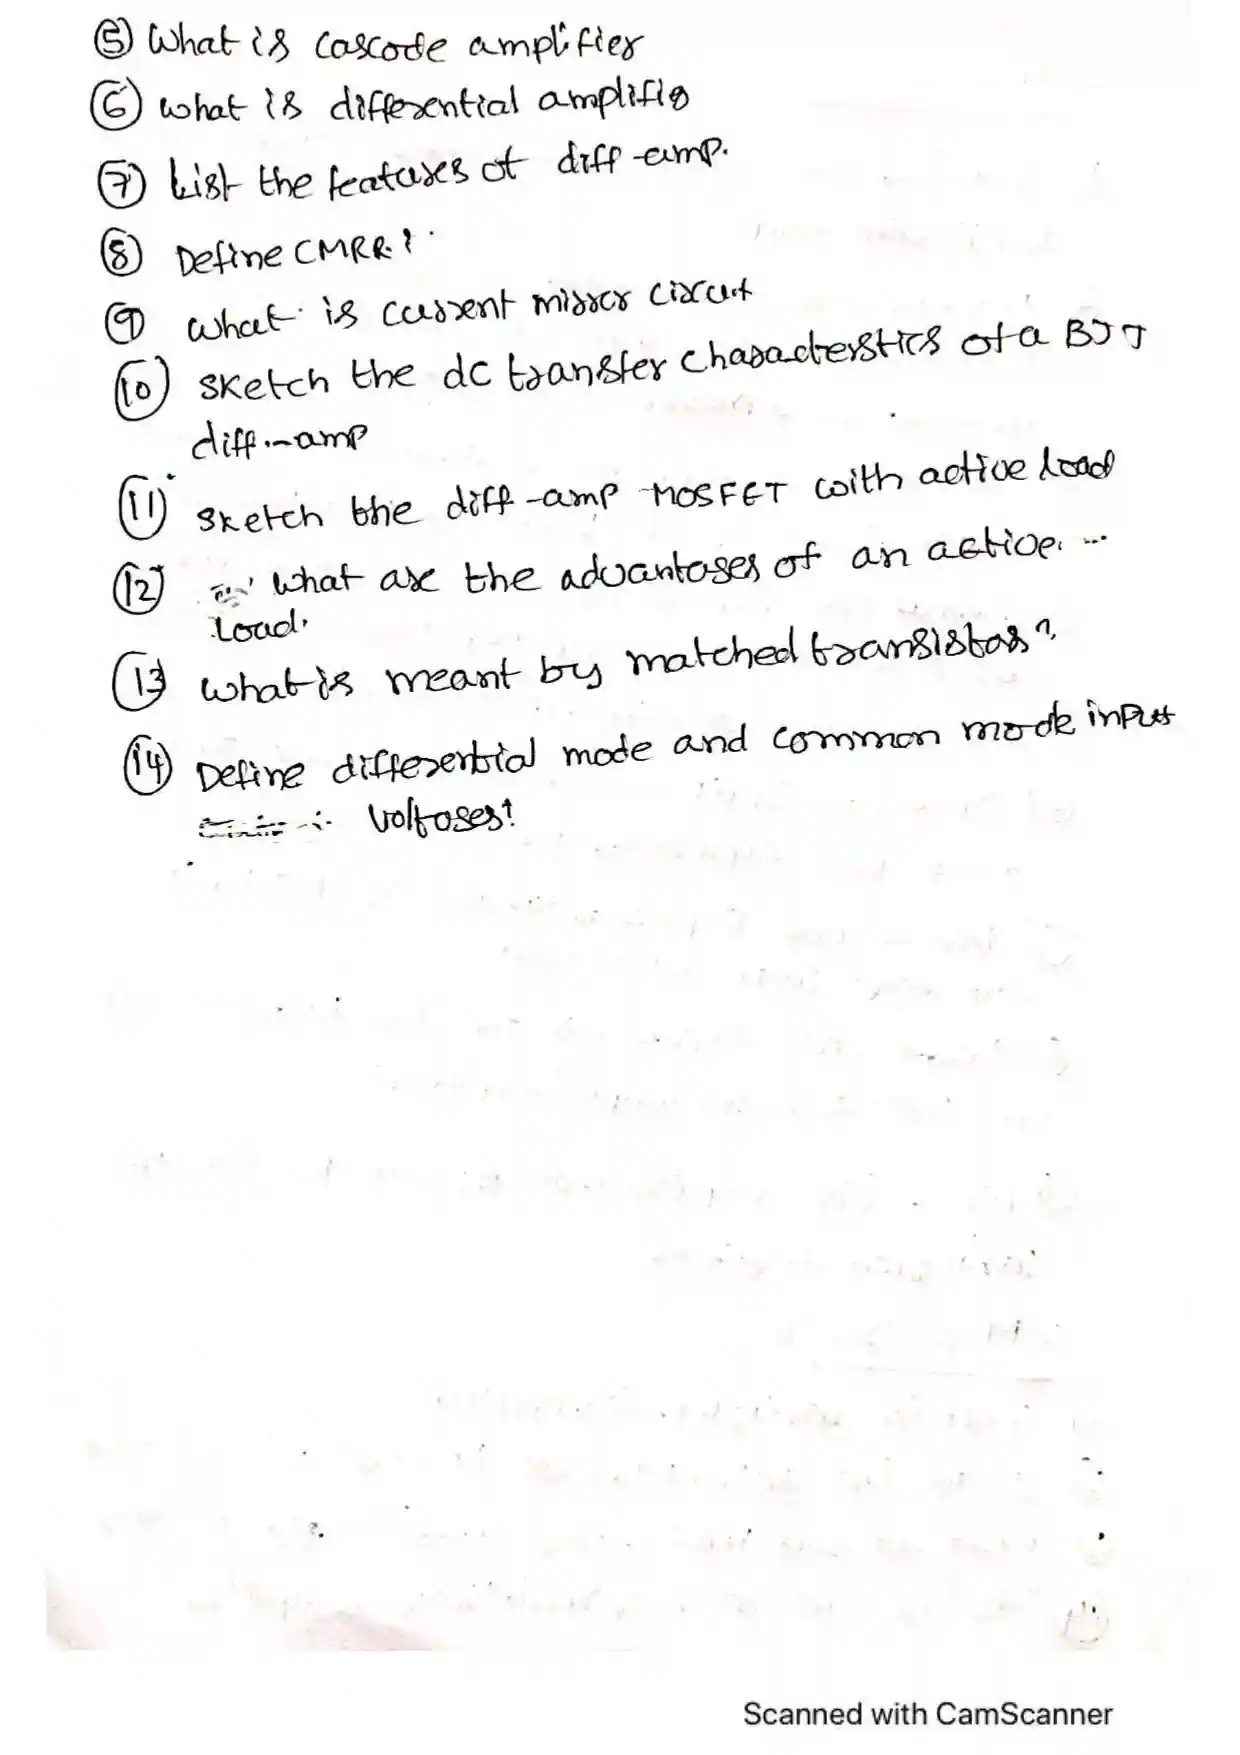 ⑤ What is cascode amplifier
⑥ what is differential amplifie
⑦ List the features of diff-amp.
⑧ Define CMRR?
⑨ what is current mirror circuit
⑩ sketch the dc transfer characterstics of a BJT
diff.-amp
⑪ sketch the diff-amp MOSFET with active load
⑫ what are the advantages of an active
Load.
⑬ what is meant by matched transistors?
⑭ Define differential mode and common mode input
voltages?
Scanned with CamScanner